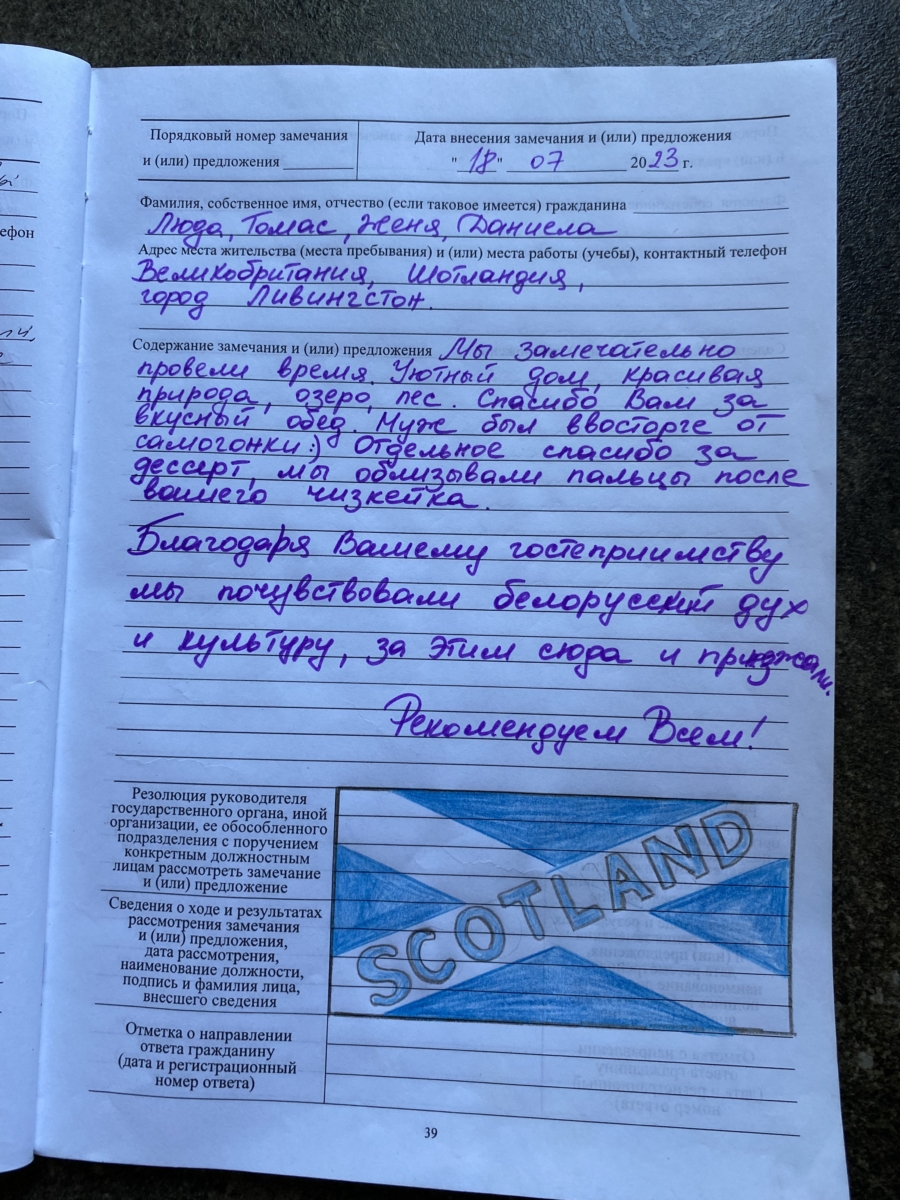 Порядковый номер замечания
и (или) предложения
Дата внесения замечания и (или) предложения
"18" 07 2023 г.
Фамилия, собственное имя, отчество (если таковое имеется) гражданина
Люда, Томас, Женя, Даниела
Адрес места жительства (места пребывания) и (или) места работы (учебы), контактный телефон
Великобритания, Шотландия,
город Ливингстон.
Содержание замечания и (или) предложения Мы замечательно
провели время. Уютный дом, красивая
природа, озеро, пес. Спасибо Вам за
вкусный обед. Муж был ввосторге от
самогонки:) Отдельное спасибо за
дессерт, мы облизывали пальцы после
вашего чизкейка.
Благодаря Вашему гостеприимству
мы почувствовали белорусский дух
и культуру, за этим сюда и приезжали.
Рекомендуем Всем!
Резолюция руководителя
государственного органа, иной
организации, ее обособленного
подразделения с поручением
конкретным должностным
лицам рассмотреть замечание
и (или) предложение
SCOTLAND
Сведения о ходе и результатах
рассмотрения замечания
и (или) предложения,
дата рассмотрения,
наименование должности,
подпись и фамилия лица,
внесшего сведения
Отметка о направлении
ответа гражданину
(дата и регистрационный
номер ответа)
39
ефон